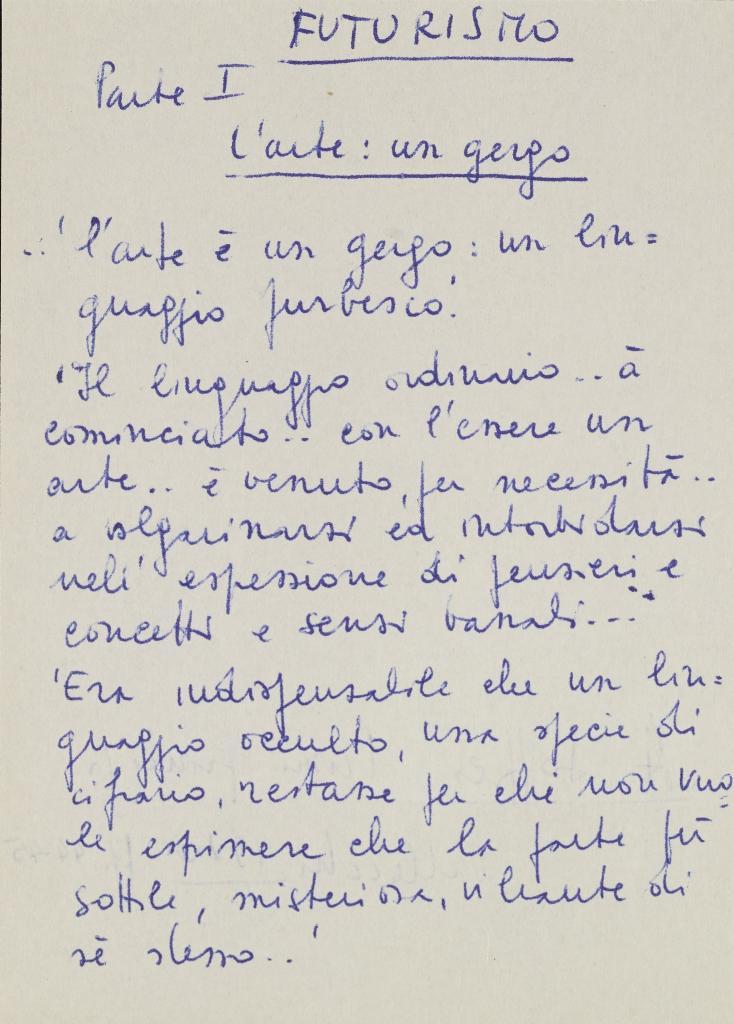 FUTURISMO
Parte I
L'arte: un gergo
..'l'arte è un gergo: un lin=
guaggio furbesco'.
'Il linguaggio ordinario.. à
cominciato.. con l'essere un
arte.. è venuto, per necessità..
a volgarizzarsi ed intorbidarsi
nell'espressione di pensieri e
concetti e sensi banali...'
'Era indispensabile che un lin=
guaggio occulto, una specie di
cifrario, restasse per chi non vuo=
le esprimere che la parte più
sottile, misteriosa, vibrante di
sè stesso..'